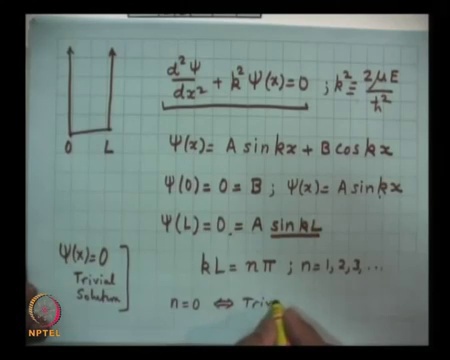 d²Ψ/dx² + k²Ψ(x)=0 ; k²≡ 2μE/ħ²
0 L
Ψ(x)= A sin kx + B cos kx
Ψ(0)=0=B ; Ψ(x)= A sin kx
Ψ(L)=0 = A sin kL
Ψ(x)=0
Trivial
Solution
kL = nπ ; n=1,2,3,...
n=0 ⇔ Triv
NPTEL